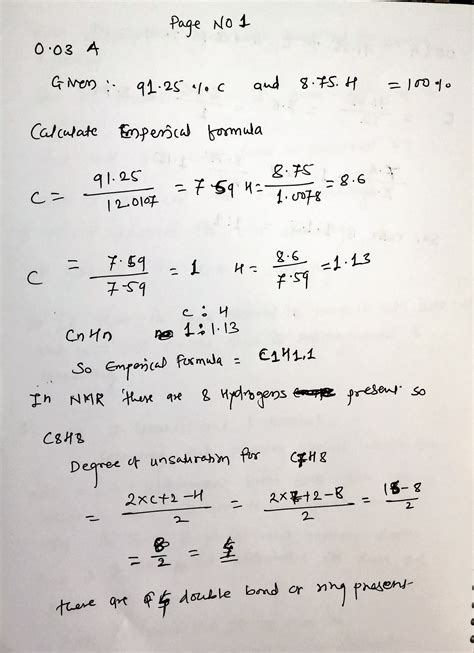 Page No 1
0.03 A
Given :- 91.25 % C and 8.75. H = 100 %
Calculate Emperical formula
C = 91.25 / 12.0107 = 7.59 H = 8.75 / 1.0078 = 8.6
C = 7.59 / 7.59 = 1 H = 8.6 / 7.59 = 1.13
C : H
CnHn 1 : 1.13
So Emperical Formula = C1H1.1
In NMR there are 8 Hydrogens present so
C8H8
Degree of unsaturation for C7H8
= 2xC+2-H / 2 = 2x7+2-8 / 2 = 16-8 / 2
= 8 / 2 = 4
there are 4 double bond or ring present-